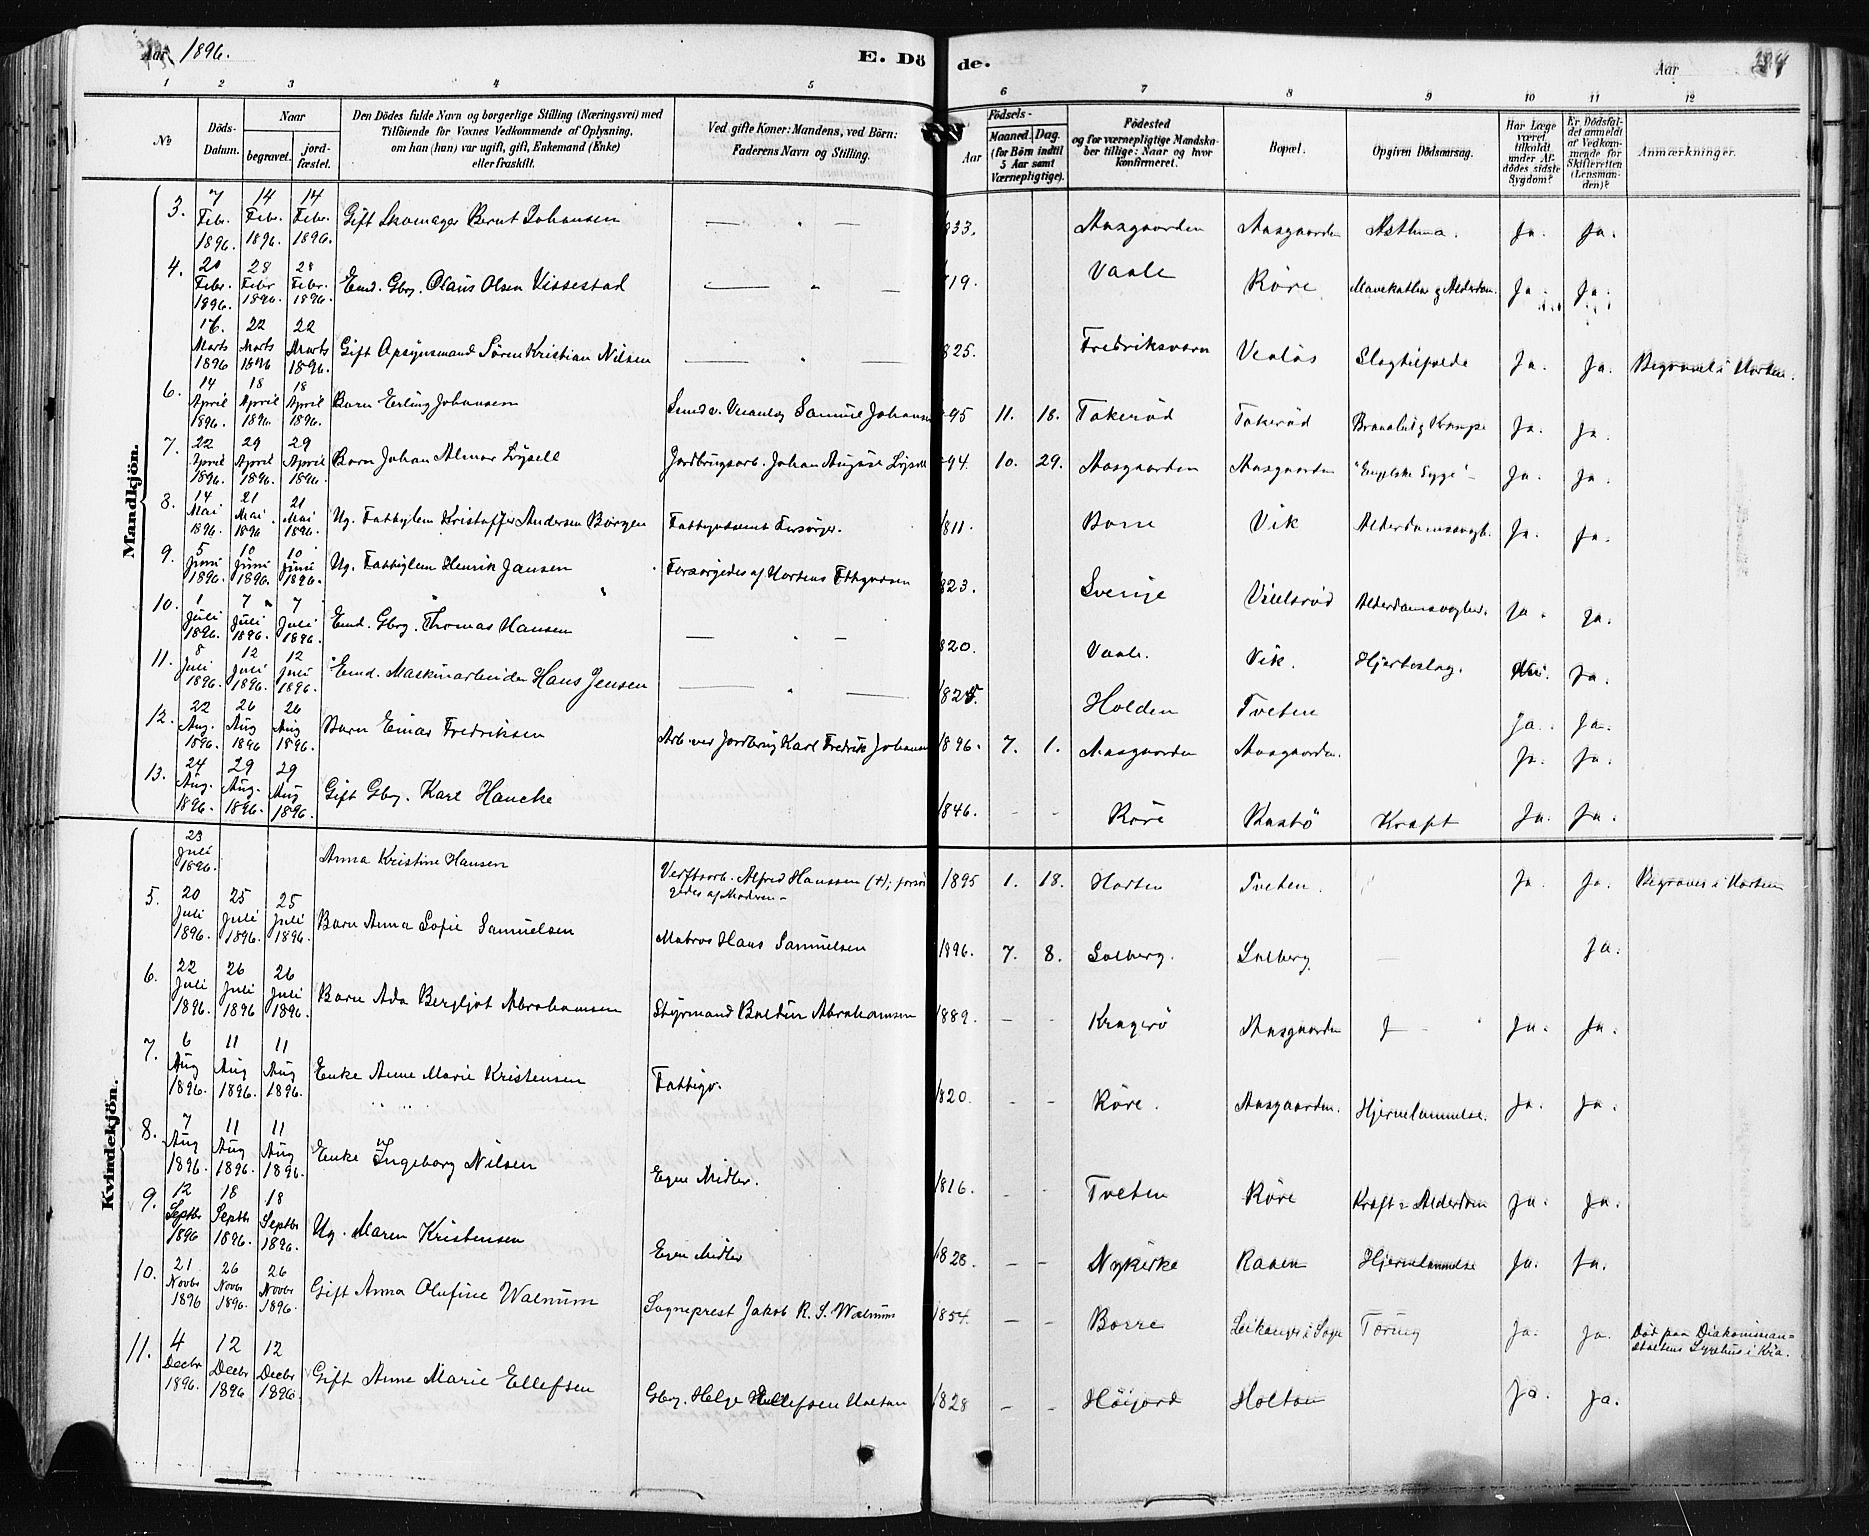 Aar 1896.
E. Döde.
Aar
1 2 3 4 5 6 7 8 9 10 11 12
No
Döds-Datum.
Naar
begravet.
jordfæstet.
Den Dödes fulde Navn og borgerlige Stilling (Næringsvei) med
Tilföiende for Voxnes Vedkommende af Oplysning,
om han (hun) var ugift, gift, Enkemand (Enke)
eller fraskilt.
Ved gifte Koner: Mandens, ved Börn:
Faderens Navn og Stilling.
Födsels-
Aar
Maaned. Dag.
(for Börn indtil
5 Aar samt
Værnepligtige).
Födested
og for værnepligtige Mandskaber tillige: Naar og hvor
konfirmeret.
Bopæl.
Opgiven Dödsaarsag.
Har Læge været tilkaldt under Afdödes sidste Sygdom?
Er Dödsfaldet anmeldt af Vedkommende for Skifteretten (Lensmanden)?
Anmærkninger.
Mandkjön.
3. 7 Febr. 1896. 14 Febr. 1896. 14 Febr. 1896. Gift Skomager Bernt Johansen — " — 833. Aasgaarden Aasgaarden Asthma. Ja. Ja.
4. 20 Febr. 1896. 28 Febr 1896. 28 Febr. 1896. Emd. Gbrg. Olaus Olsen Vissestad — " — 819. Vaale Røre Mavekatar g Alderdom. Ja. Ja.
16. Marts 1896 22 Marts 1896 22 Marts 1896. Gift Opsynsmand Søren Kristian Nilsen — " — 825. Fredriksværn Vealøs Slagtilfælde Ja. Ja. Begravet i Horten.
6. 14 April 1896. 18 April 1896. 18 April 1896. Barn Erling Johansen Samuel Johansen 95 11. 18. Takerød Takerød Krampe Ja. Ja.
7. 22 April 1896. 29 April 1896. 29 April 1896. Barn Johan Almar Lysell Jordbrugsarb. Johan August Lysell 94. 10. 29. Aasgaarden Aasgaarden "Engelske Syge" Ja. Ja.
8. 14 Mai 1896. 21 Mai 1896 21 Mai 1896. Ug. Fattiglem Kristoffer Andersen Borgen Fattigvæsenet Forsørger. 1811. Borre Vik Alderdomssvagh. Ja. Ja.
9. 5 Juni 1896. 10 Juni 1896. 10 Juni 1896. Ug. Fattiglem Henrik Jansen Forsørgedes af Hortens Fttgvæsen 823. Sverige Alderdomssvaghed. Ja. Ja.
10. 1 Juli 1896. 7 Juli 1896. 7 Juli 1896. Emd. Gbrg. Thomas Hansen — " — 820. Vaale. Vik. Hjerteslag. Nei. Ja.
11. 8 Juli 1896. 12 Juli 1896. 12 Juli 1896. Emd. Maskinarbeider Hans Jensen — " — 1825. Holden Tveten Ja. Ja.
12. 22 Aug. 1896. 26 Aug 1896 26 Aug 1896. Barn Einar Fredriksen Arb. ved Jordbrug Karl Fredrik Johansen 1896. 7. 1. Aasgaarden Aasgaarden. Ja. Ja.
13. 24 Aug. 1896. 29 Aug. 1896. 29 Aug 1896. Gift Gbrg. Karl Hancke 1846. - - Røre Bastø Kræft Ja. Ja.
Kvindekjön.
23 Juli 1896. Anna Kristine Hansen Verftsarb. Alfred Hanssen (+); forsørgedes af Moderen - 1895 1. 18. Horten Tveten. Ja. Ja. Begraves i Horten
5. 20 Juli 1896. 25 Juli 1896. 25 Juli 1896. Barn Anna Sofie Samuelsen Matros Hans Samuelsen 1896. 7. 8. Solberg. Solberg — Ja.
6. 22 Juli 1896. 26 Juli 1896 26 Juli 1896. Barn Ada Bergljot Abrahamsen Styrmand Abrahamsen 1889. - - Kragerø Aasgaarden Ja. Ja.
7. 6 Aug 1896. 11 Aug 1896. 11 Aug 1896. Enke Anne Marie Kristensen Fattigv. 1820. - - Røre. Aasgaarden. Hjernelammelse. Ja. Ja.
8. 7 Aug 1896. 11 Aug 1896. 11 Aug 1896. Enke Ingeborg Nilsen Egne Midler. 1816. - - Tveten Røre Kræft & Alderdom Ja. Ja.
9. 12 Septbr 1896 18 Septbr 1896. 18 Septbr 1896. Ug. Maren Kristensen Egne Midler 1828. - - Nykirke Raaen Hjernelammelse Ja. Ja.
10. 21 Novbr 1896 26 Novbr 1896. 26 Novbr 1896. Gift Anna Olufine Walnum Sogneprest Jakob R. S. Walnum 1854. - - Borre Leikanger i Sogn Tæring Ja. Ja. Død paa Diakonissanstaltens Sygehus i Kra.
11. 4 Decbr 1896. 12 Decbr 1896 12 Decbr 1896. Gift Anne Marie Ellefsen Gbrg. Helge Ellefsen Holtan 1828 - - Høijord Holtan Ja. Ja.